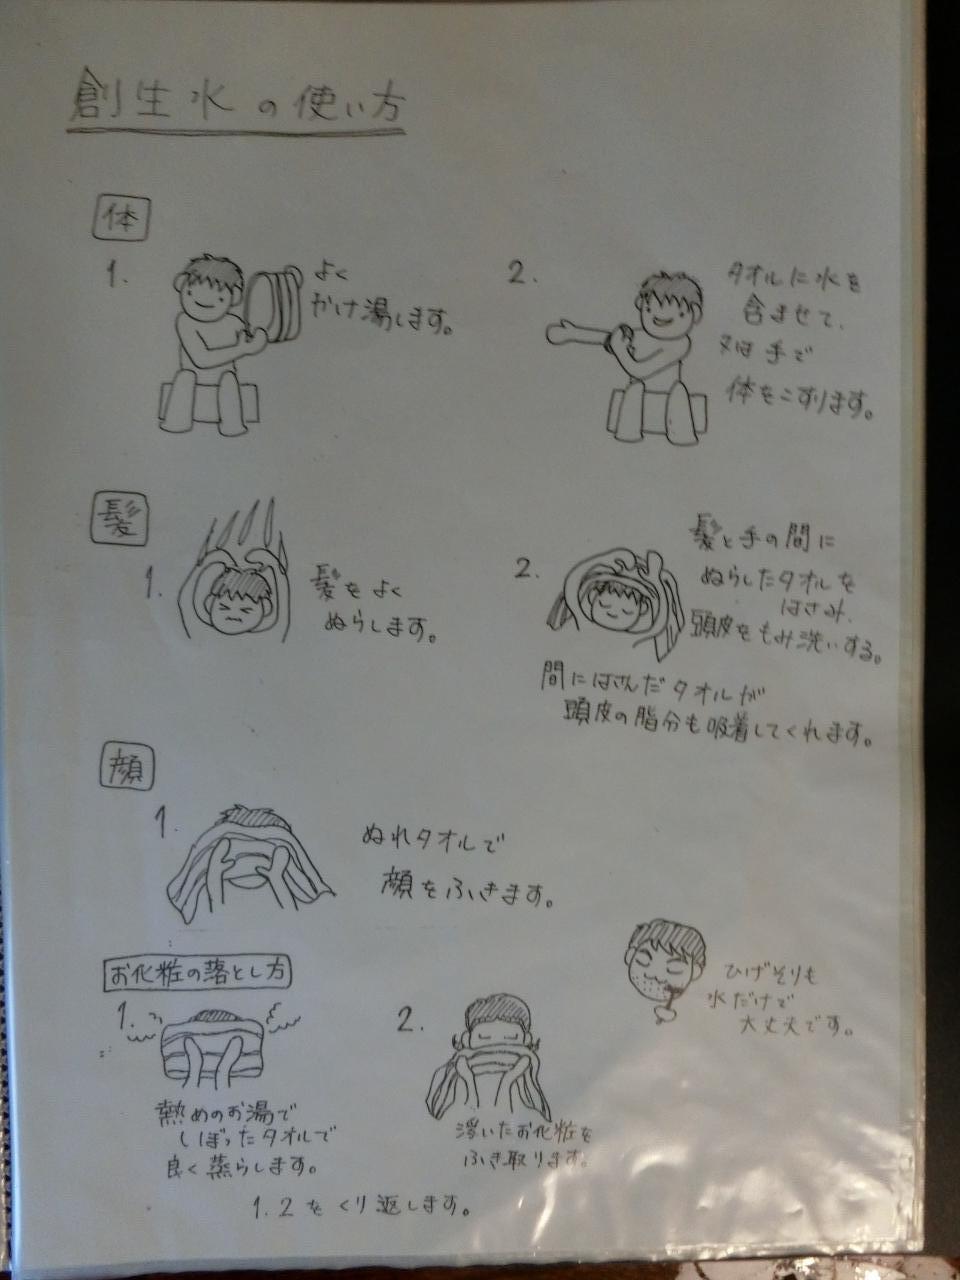 創生水の使い方
体
1.
よく
かけ湯します。
2.
タオルに水を
含ませて、
又は手で
体をこすります。
髪
1.
髪をよく
ぬらします。
2.
髪と手の間に
ぬらしたタオルを
はさみ、
頭皮をもみ洗いする。
間にはさんだタオルが
頭皮の脂分も吸着してくれます。
顔
1.
ぬれタオルで
顔をふきます。
ひげそりも
水だけで
大丈夫です。
お化粧の落とし方
1.
熱めのお湯で
しぼったタオルで
良く蒸らします。
2.
浮いたお化粧を
ふき取ります。
1.2をくり返します。